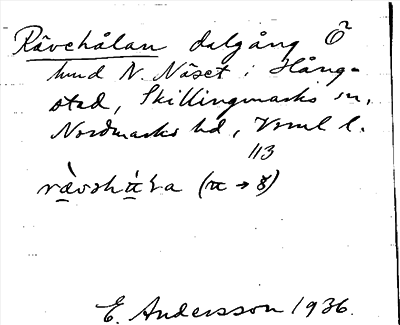 Rävehålan dalgång Ö
hund N. Näset i Hång-
stad, Skillingmarks sn,
Nordmarks hd, Vrml l.
113
E. Andersson 1936.